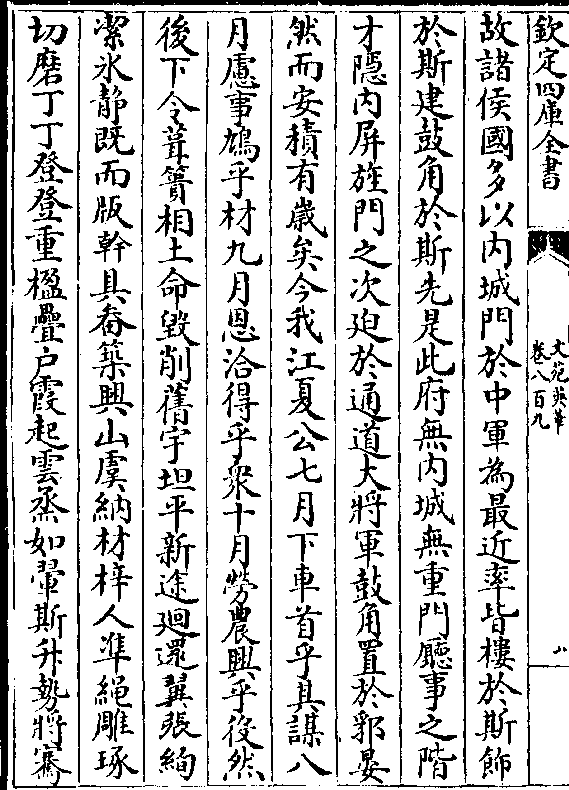 欽定四庫全書
文苑英華
卷八百九
八
故諸侯國多以内城門於中軍為最近率皆樓於斯飾
於斯建鼓角於斯先是此府無内城無重門廳事之階
才隱内屏旌門之次廹於通道大將軍鼓角置於郛晏
然而安積有歲矣今我江夏公七月下車首乎其謀八
月慮事鳩乎材九月恩洽得乎衆十月勞農興乎役然
後下令葺簣相土命毀削舊宇坦平新途廻還翼張絢
潔氷静既而版幹具畚築興山虞納材梓人準繩雕琢
切磨丁丁登登重楹疊户霞起雲烝如翬斯升勢將騫